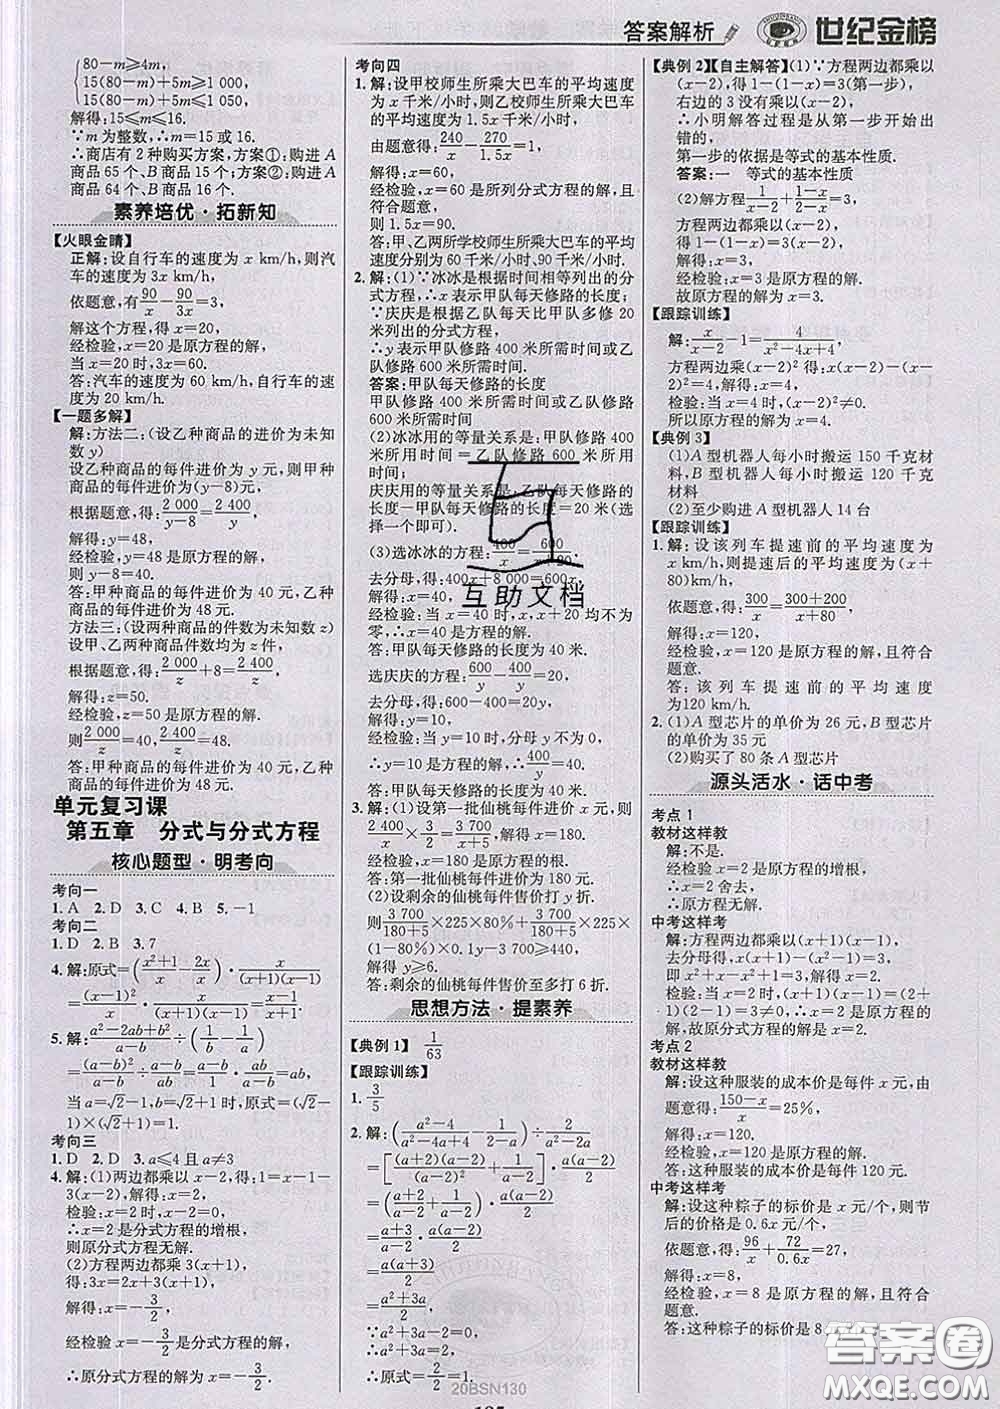 答案解析
世纪金榜
80−m≥4m,
15(80−m)+5m≥1 000,
15(80−m)+5m≤1 050,
解得:15≤m≤16.
∵m为整数,∴m=15或16.
∴商店有2种购买方案,方案①:购进A
商品65个、B商品15个;方案②:购进A
商品64个、B商品16个.
素养培优·拓新知
【火眼金睛】
正解:设自行车的速度为x km/h,则汽
车的速度为3x km/h,
依题意,有90/x−90/3x=3,
解这个方程,得x=20,
经检验,x=20是原方程的解,
当x=20时,3x=60.
答:汽车的速度为60 km/h,自行车的速
度为20 km/h.
【一题多解】
解:方法二:(设乙种商品的进价为未知
数y)
设乙种商品的每件进价为y元,则甲种
商品的每件进价为(y−8)元,
根据题意,得:2 000/(y−8)=2 400/y,
解得:y=48,
经检验,y=48是原方程的解,
则y−8=40.
答:甲种商品的每件进价为40元,乙种
商品的每件进价为48元.
方法三:(设两种商品的件数为未知数z)
设甲、乙两种商品均购进z件,
根据题意,得:2 000/z+8=2 400/z,
解得:z=50.
经检验,z=50是原方程的解.
则2 000/z=40,2 400/z=48.
答:甲种商品的每件进价为40元,乙种
商品的每件进价为48元.
单元复习课
第五章 分式与分式方程
核心题型·明考向
考向一
1.A 2.D 3.C 4.B 5.−1
考向二
1.D 2.B 3.7
4.解:原式=((x²+1)/x−2x/x)·x/((x+1)(x−1))
=(x−1)²/x·x/((x+1)(x−1))=(x−1)/(x+1).
5.解:(a²−2ab+b²)/(a−b)÷(1/b−1/a)
=(a−b)²/(a−b)÷(a−b)/ab=(a−b)²/(a−b)·ab/(a−b)=ab,
当a=√2−1,b=√2+1时,原式=(√2−
1)×(√2+1)=1.
考向三
1.D 2.D 3.a≤4且a≠3
4.解:(1)两边都乘x−2,得:x−1+2(x−
2)=1,解得:x=2,
检验:当x=2时,x−2=0,
∴x=2是分式方程的增根,
则原分式方程无解.
(2)方程两边都乘3(x+1),
得:3x=2x+3(x+1),
解得:x=−3/2,
经检验x=−3/2是分式方程的解,
∴原分式方程的解为x=−3/2.
考向四
1.解:设甲校师生所乘大巴车的平均速度
为x千米/小时,则乙校师生所乘大巴车
的平均速度为1.5x千米/小时,
由题意得:240/x−270/1.5x=1,
解得:x=60,
经检验,x=60是所列分式方程的解,
并且符合题意,
则1.5x=90,
答:甲、乙两所学校师生所乘大巴车的平均速
度分别为60千米/小时、90千米/小时.
2.解:(1)∵冰冰是根据时间相等列出的分
式方程,∴x表示甲队每天修路的长度;
∵庆庆是根据乙队每天比甲队多修20
米列出的分式方程,
∴y表示甲队修路400米所需时间或乙
队修路600米所需时间.
答案:甲队每天修路的长度
甲队修路400米所需时间或乙队修路600
米所需时间
(2)冰冰用的等量关系是:甲队修路400
米所用时间=乙队修路600米所用
时间;
庆庆用的等量关系是:乙队每天修路的
长度−甲队每天修路的长度=20米(选
择一个即可).
(3)选冰冰的方程:400/x=600/(x+20),
去分母,得:400x+8 000=600x,
解得:x=40,
经检验,当x=40时,x,x+20均不为
零,∴x=40是方程的解.
答:甲队每天修路的长度为40米.
选庆庆的方程:600/y−400/y=20,
去分母,得:600−400=20y,
解得:y=10,
经检验:当y=10时,分母y不为0,
∴y=10是方程的解,∴400/y=40.
答:甲队每天修路的长度为40米.
3.解:(1)设第一批仙桃每件进价x元,则
2 400/x×3/2=3 700/(x+5),
解得x=180.
经检验,x=180是原方程的根.
答:第一批仙桃每件进价为180元.
(2)设剩余的仙桃每件售价打y折.
则3 700/(180+5)×225×80%+3 700/(180+5)×225×
(1−80%)×0.1y−3 700≥440,
解得y≥6.
答:剩余的仙桃每件售价至少打6折.
思想方法·提素养
【典例1】 1/63
【跟踪训练】
1. 3/5
2.解:((a²−4)/(a²−4a+4)−1/(2−a))÷2/(a²−2a)
=[(a+2)(a−2)/(a−2)²+1/(a−2)]·a(a−2)/2
=((a+2)/(a−2)+1/(a−2))·a(a−2)/2
=(a+3)/(a−2)·a(a−2)/2
=a(a+3)/2
=(a²+3a)/2,
∵a²+3a−2=0,
∴a²+3a=2,
∴原式=2/2=1.
【典例2】【自主解答】(1)∵方程两边都乘以
(x−2),得1−x=3(第一步),
右边的3没有乘以(x−2),
∴小明解答过程是从第一步开始出
错的,
第一步的依据是等式的基本性质.
答案:一 等式的基本性质
(2)解方程1/(x−2)+(1−x)/(2−x)=x,
方程两边都乘以(x−2),
得1−(1−x)=x(x−2),
解得:x=3,
经检验:x=3是原方程的解,
故原方程的解为x=3.
【跟踪训练】
解:x/(x−2)−1=4/(x²−4x+4),
方程两边乘(x−2)²得:x(x−2)−(x−
2)²=4,解得:x=4,
检验:当x=4时,(x−2)²≠0.
所以原方程的解为x=4.
【典例3】
(1)A型机器人每小时搬运150千克材
料,B型机器人每小时搬运120千克
材料
(2)至少购进A型机器人14台
【跟踪训练】
1.解:设该列车提速前的平均速度为
x km/h,则提速后的平均速度为(x+
80)km/h,
依题意,得:300/x=(300+200)/(x+80),
解得:x=120,
经检验,x=120是原方程的解,且符合
题意.
答:该列车提速前的平均速度
为120 km/h.
2.(1)A型芯片的单价为26元,B型芯片
的单价为35元
(2)购买了80条A型芯片
源头活水·话中考
考点1
教材这样教
解:不是.
经检验x=2是原方程的增根,
∴x=2舍去,
∴原方程无解.
中考这样考
解:方程两边都乘以(x+1)(x−1),
去分母得:x(x+1)−(x²−1)=3,
即x²+x−x²+1=3,解得:x=2
检验:当x=2时,(x+1)(x−1)=(2+
1)(2−1)=3≠0,∴x=2是原方程的
解,故原分式方程的解是x=2.
考点2
教材这样教
解:设这种服装的成本价是每件x元,由
题意得:(150−x)/x=25%,
解得:x=120.
经检验:x=120是原方程的解.
答:这种服装的成本价是每件120元.
中考这样考
解:设这种粽子的标价是x元/个,则节
后的价格是0.6x元/个,
依题意,得:96/x+72/0.6x=27,
解得:x=8,
经检验,x=8是原方程的解,且符合
题意.
答:这种粽子的标价是8
互助文档
20BSN130
答案圈
MXQE.COM